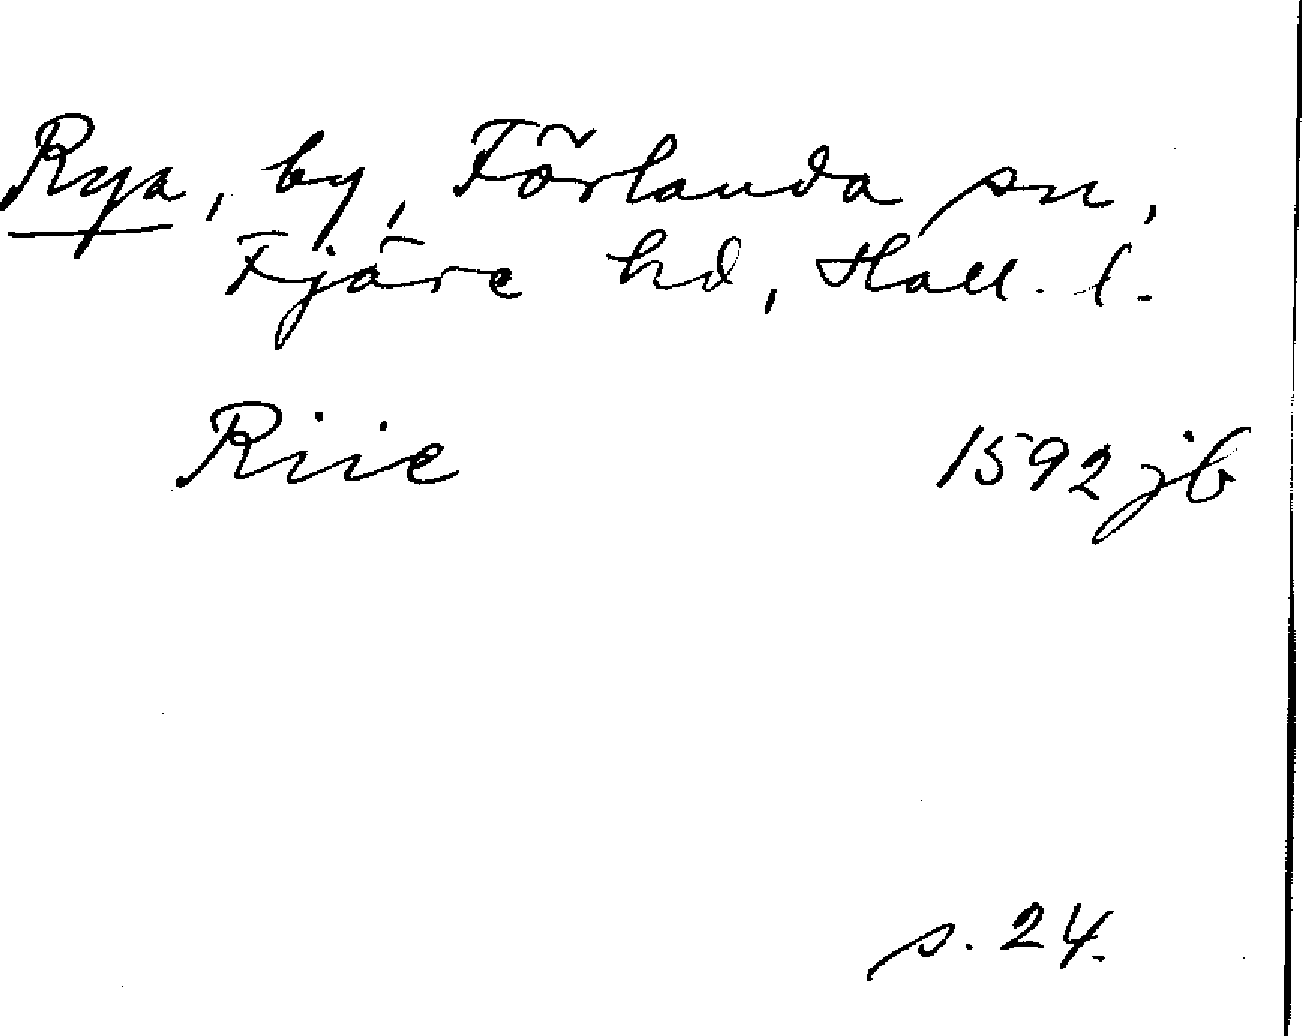 Rya, by, Förlanda sn,
Fjäre hd, Hall. l.
Riie 1592 jb
s. 24.